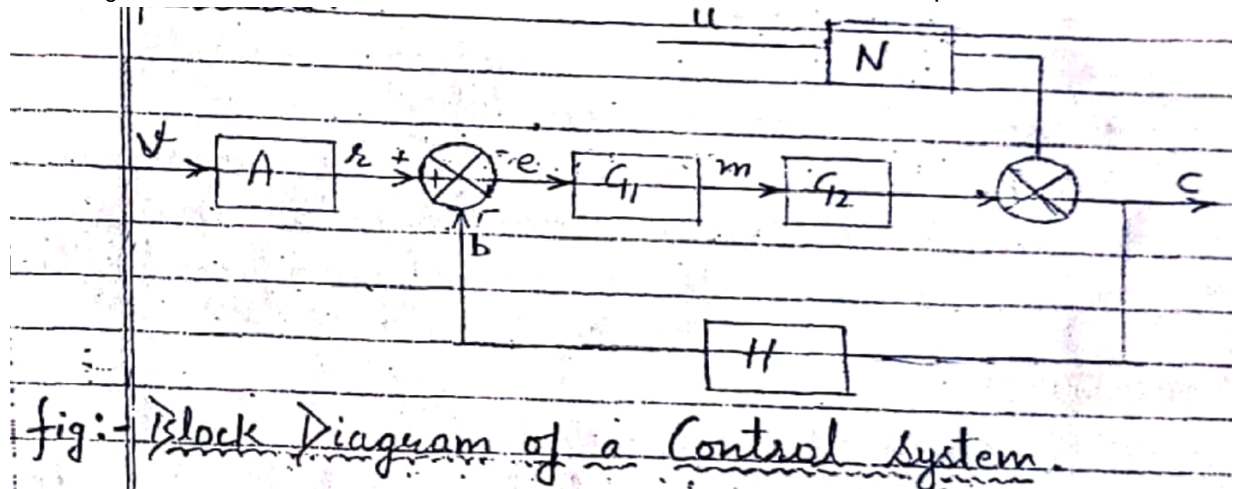 u
N
v A r + e G1 m G2 c
+ -
b
H
fig:- Block Diagram of a Control System.